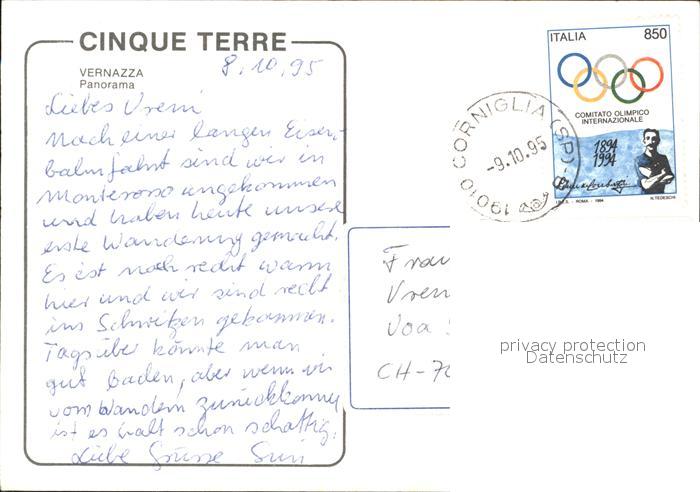 CINQUE TERRE
VERNAZZA
Panorama
8.10.95
Liebes Vreni
Nach einer langen Eisen-
bahnfahrt sind wir in
Monterosso angekommen
und haben heute unsere
erste Wanderung gemacht.
Es ist noch recht warm
hier und wir sind recht
ins Schwitzen gekommen.
Tagsüber könnte man
gut baden, aber wenn wir
vom Wandern zurückkommen
ist es halt schon schattig.
Liebe Grüsse
ITALIA 850
COMITATO OLIMPICO
INTERNAZIONALE
1894
1994
I.P.Z.S. - ROMA - 1994 N.TEDESCHI
19010 CORNIGLIA (SP)
-9.10.95
Frau
Vren
Voa
CH-70
privacy protection
Datenschutz